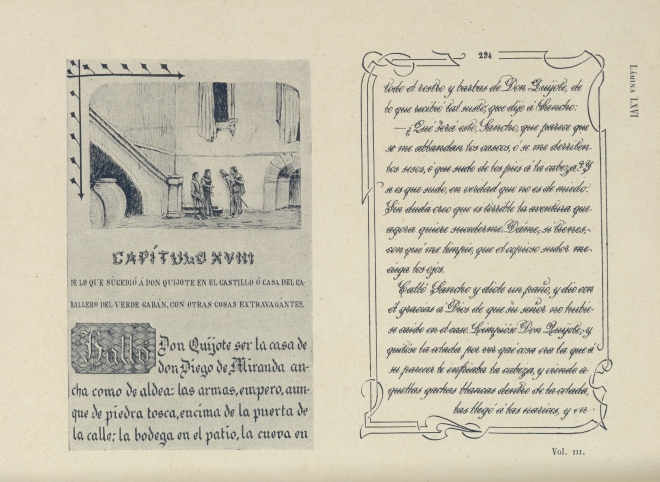 CAPÍTULO XVIII
DE LO QUE SUCEDIÓ Á DON QUIJOTE EN EL CASTILLO Ó CASA DEL CA-
BALLERO DEL VERDE GABÁN, CON OTRAS COSAS EXTRAVAGANTES.
Halló Don Quijote ser la casa de
don Diego de Miranda an-
cha como de aldea: las armas, empero, aun-
que de piedra tosca, encima de la puerta de
la calle; la bodega en el patio, la cueva en
294
todo el rostro y barbas de Don Quijote, de
lo que recibió tal susto, que dijo á Sancho:
—¿Qué será esto, Sancho, que parece que
se me ablandan los cascos, ó se me derriten
los sesos, ó que sudo de los pies á la cabeza? Y
si es que sudo, en verdad que no es de miedo:
Sin duda creo que es terrible la aventura que
agora quiere sucederme. Dáme, si tienes,
con qué me limpie, que el copioso sudor me
ciega los ojos.
Calló Sancho y dióle un paño, y dió con
él gracias á Dios de que su señor no hubie-
se caído en el caso. Limpióse Don Quijote, y
quitóse la celada por ver qué cosa era la que á
su parecer le enfriaba la cabeza, y viendo a-
quellas gachas blancas dentro de la celada,
las llegó á las narices, y en
Lámina LXVI
Vol. III.